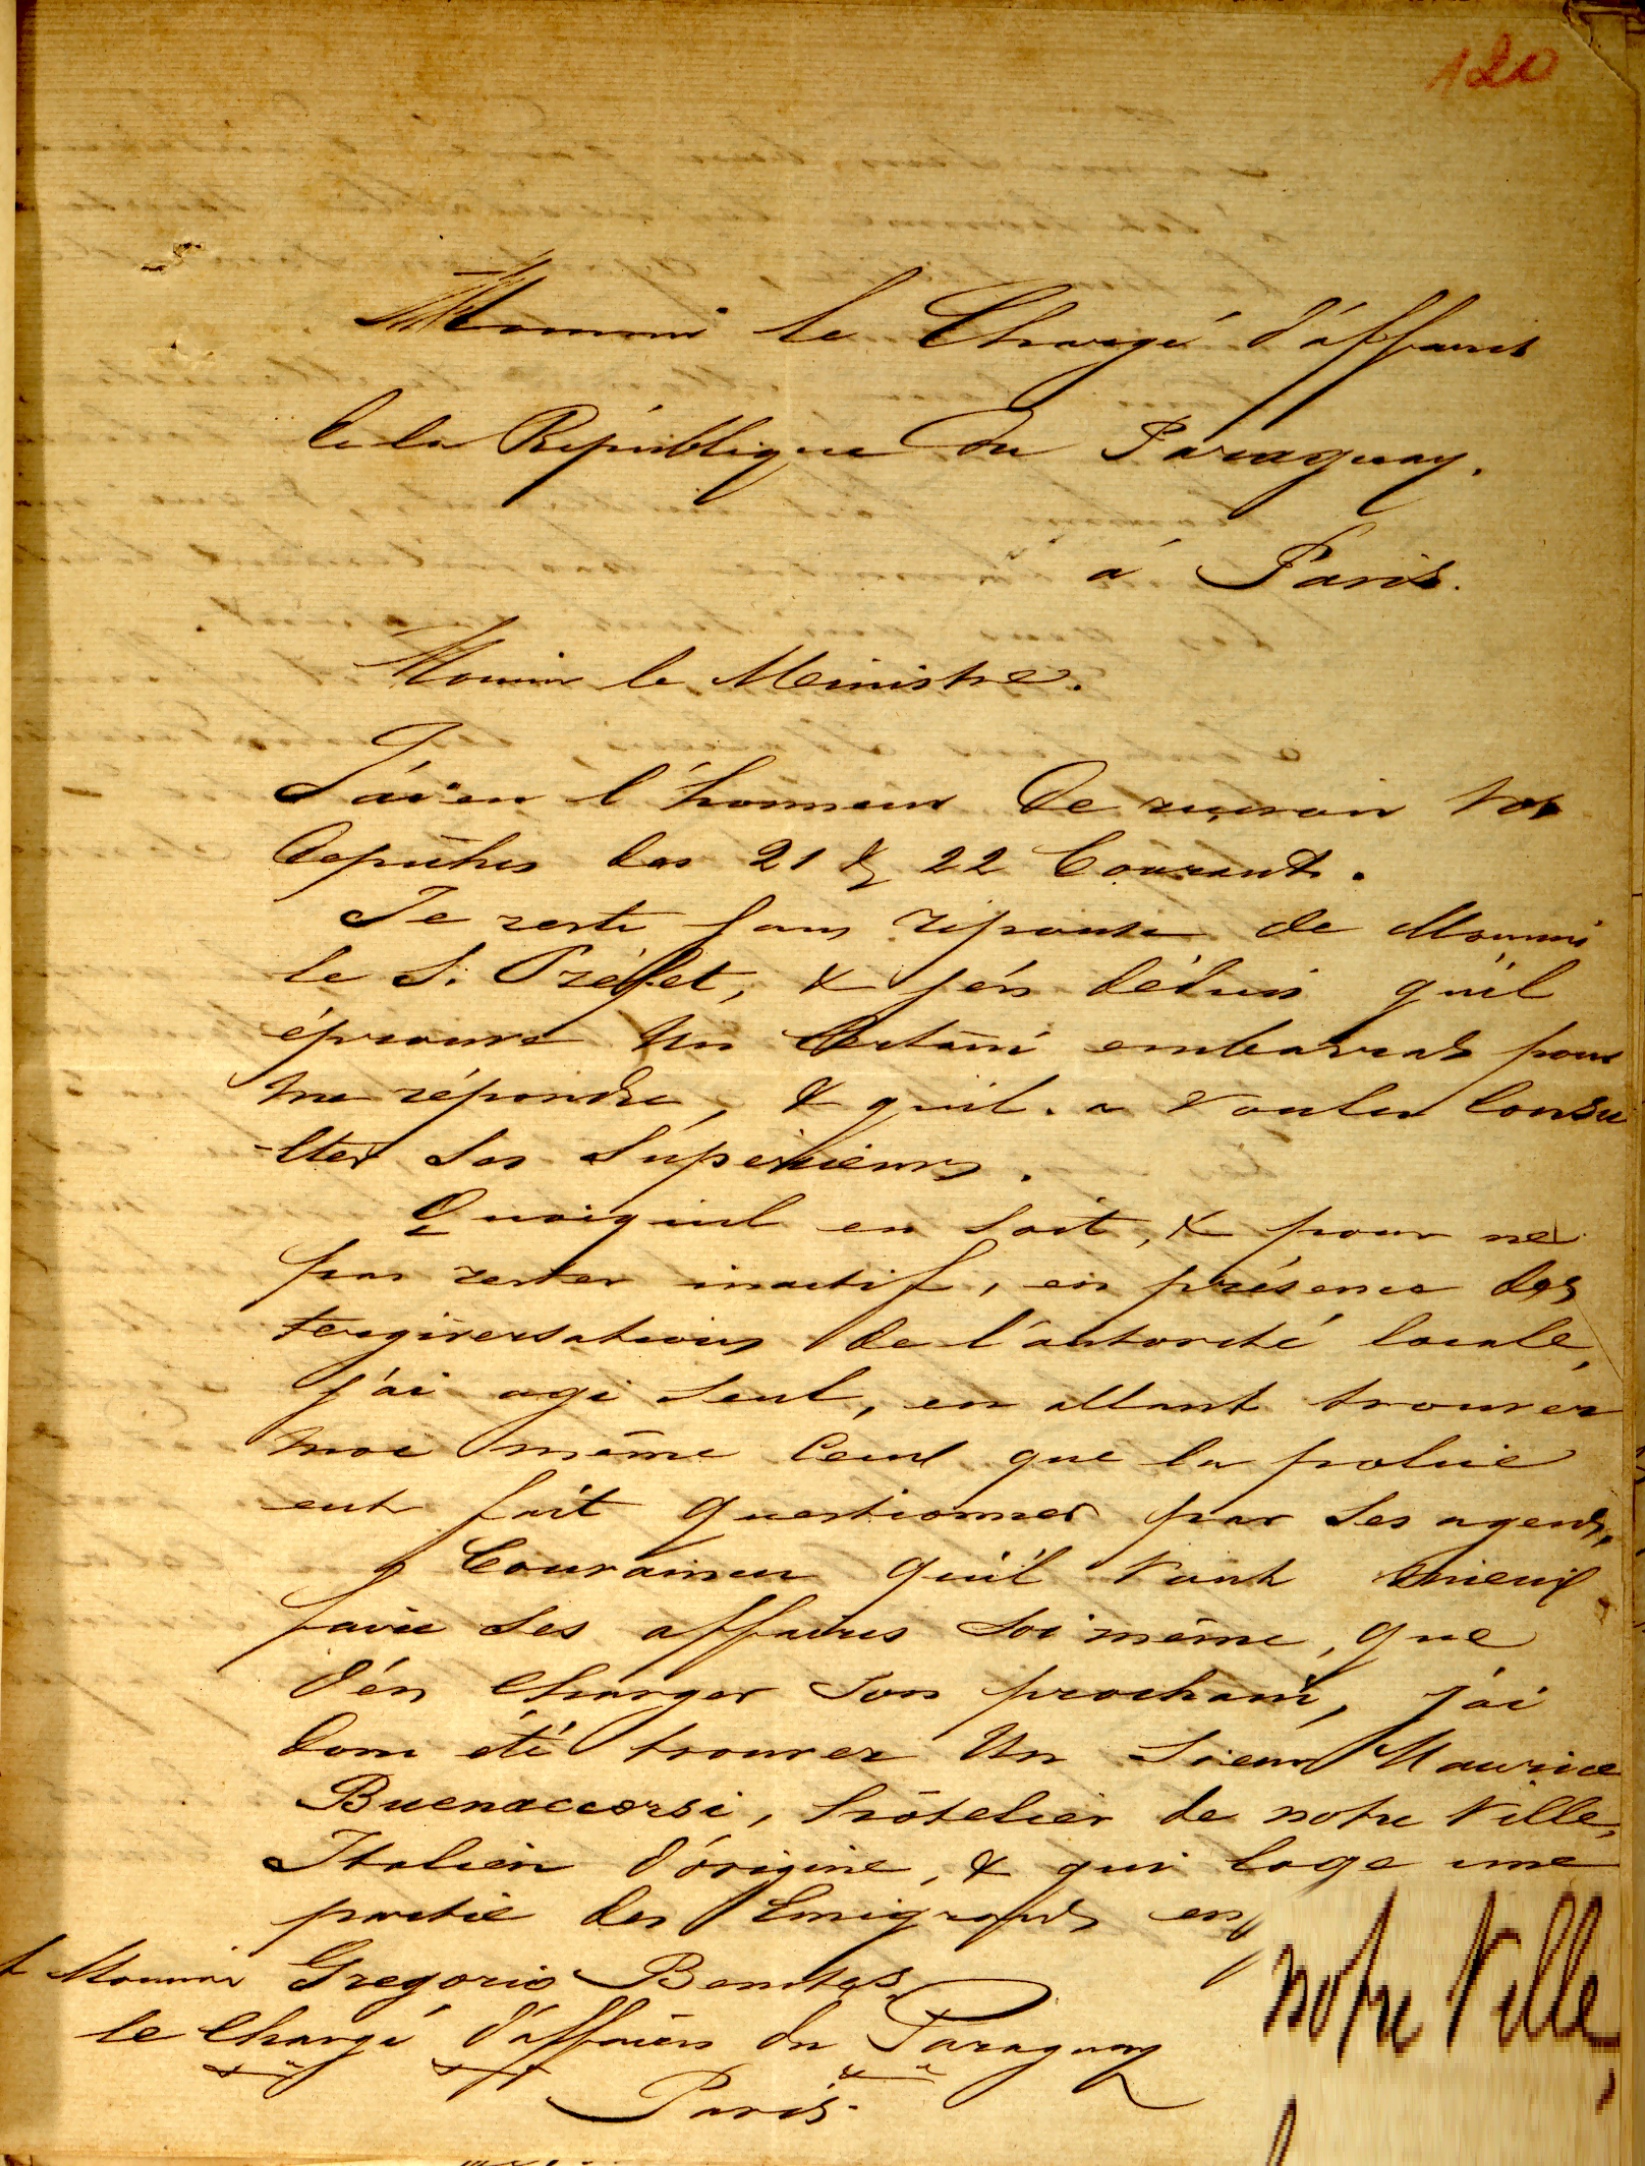 120
Monsieur le Chargé d'affaires
de la République du Paraguay.
à Paris.
Monsieur le Ministre.
J'ai eu l'honneur de recevoir vos
dépêches des 21 & 22 Courant.
Je reste sans réponse de Monsieur
le S. Préfet, & j'en déduis qu'il
éprouve un certain embarras pour
me répondre, & qu'il a voulu consu
-lter ses supérieurs.
Quoiqu'il en soit, & pour ne
pas rester inactif, en présence des
tergiversations de l'autorité locale,
j'ai agi seul, en allant trouver
moi même ceux que la police
eut fait questionner par ses agents.
Convaincu qu'il vaut mieux
faire ses affaires soi même, que
d'en charger son prochain, j'ai
donc été trouver un Sieur Maurice
Buenaccorsi, hôtelier de notre Ville,
Italien d'origine, & qui loge une
partie des Emigrants en
A Monsieur Gregorio Benites
le Chargé d'affaires du Paraguay
Paris.
notre Ville,